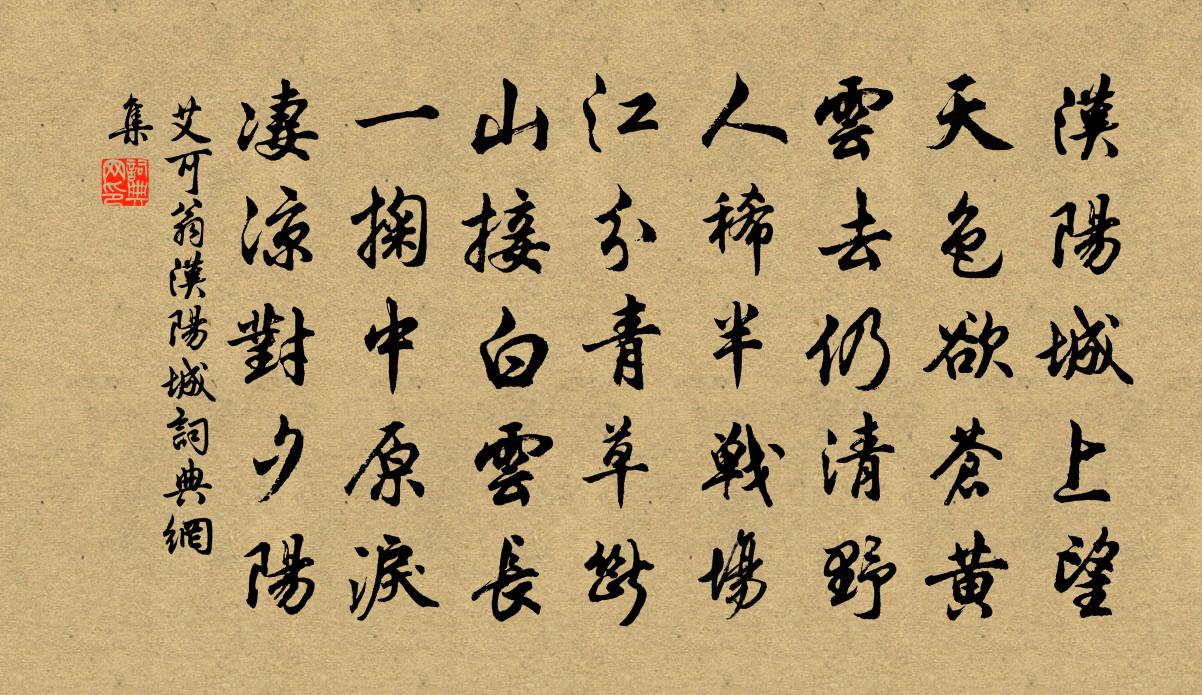 漢陽城上望
天色欲蒼黃
雲去仍清野
人稀半戰場
江分青草斷
山接白雲長
一掬中原淚
凄涼對夕陽
艾可翁漢陽城詞典網
集
詞典
网印